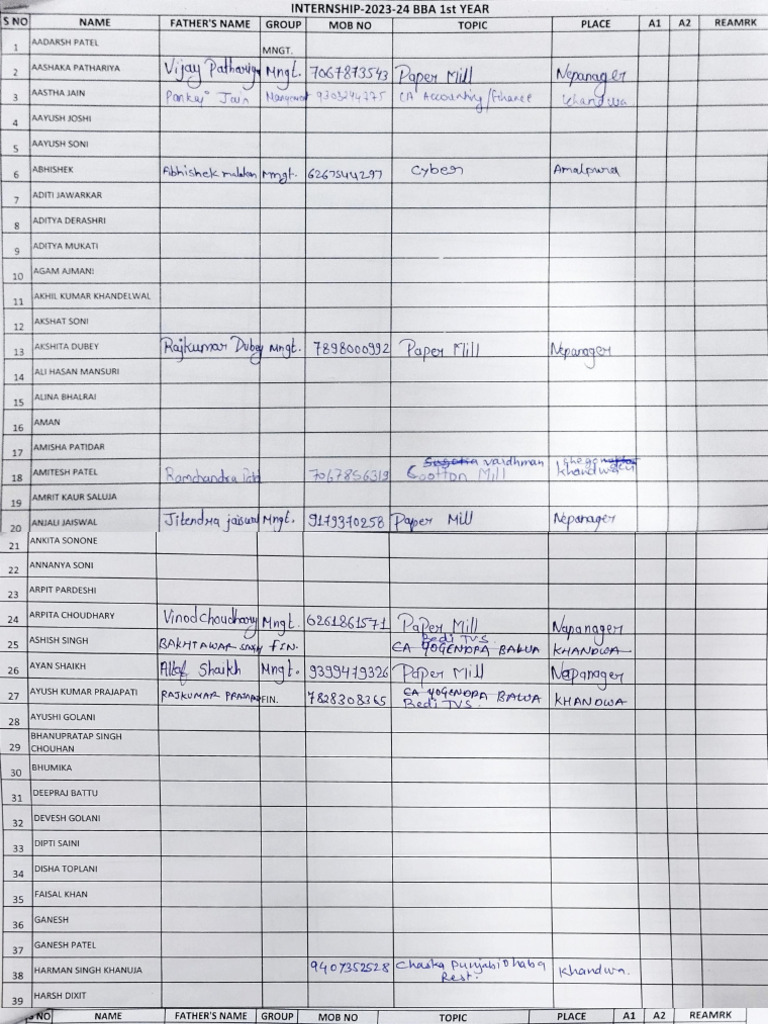 INTERNSHIP-2023-24 BBA 1st YEAR
S NO NAME FATHER'S NAME GROUP MOB NO TOPIC PLACE A1 A2 REAMRK
1 AADARSH PATEL MNGT.
2 AASHAKA PATHARIYA Vijay Mngt. 7067873543 Paper Mill Nepanager
3 AASTHA JAIN Pankaj Jain CA Accounting/Finance Khandwa
4 AAYUSH JOSHI
5 AAYUSH SONI
6 ABHISHEK Abhishek Mngt. 6267544297 Cyber Amalpura
7 ADITI JAWARKAR
8 ADITYA DERASHRI
9 ADITYA MUKATI
10 AGAM AJMANI
11 AKHIL KUMAR KHANDELWAL
12 AKSHAT SONI
13 AKSHITA DUBEY Rajkumar Dubey Mngt. 7898000992 Paper Mill Nepanager
14 ALI HASAN MANSURI
15 ALINA BHALRAI
16 AMAN
17 AMISHA PATIDAR
vardhman
18 AMITESH PATEL Ramchandra 7067856319 Cootton Mill Khandwa
19 AMRIT KAUR SALUJA
20 ANJALI JAISWAL Jitendra Mngt. 9179370258 Paper Mill Nepanager
21 ANKITA SONONE
22 ANNANYA SONI
23 ARPIT PARDESHI
24 ARPITA CHOUDHARY Vinod choudhary Mngt. 6261861571 Paper Mill Napanager
Bedi TVS
25 ASHISH SINGH BAKHTAWAR SINGH FIN. CA YOGENDRA BALUA KHANDWA
26 AYAN SHAIKH Altaf Shaikh Mngt. 9399479326 Paper Mill Napanager
27 AYUSH KUMAR PRAJAPATI RAJKUMAR FIN. 7828308365 CA YOGENDRA BALWA KHANDWA
Bedi TVS.
28 AYUSHI GOLANI
29 BHANUPRATAP SINGH
CHOUHAN
30 BHUMIKA
31 DEEPRAJ BATTU
32 DEVESH GOLANI
33 DIPTI SAINI
34 DISHA TOPLANI
35 FAISAL KHAN
36 GANESH
37 GANESH PATEL
38 HARMAN SINGH KHANUJA 9407352528 Chaska Punjabi Dhaba Khandwa.
Rest.
39 HARSH DIXIT
S NO NAME FATHER'S NAME GROUP MOB NO TOPIC PLACE A1 A2 REAMRK